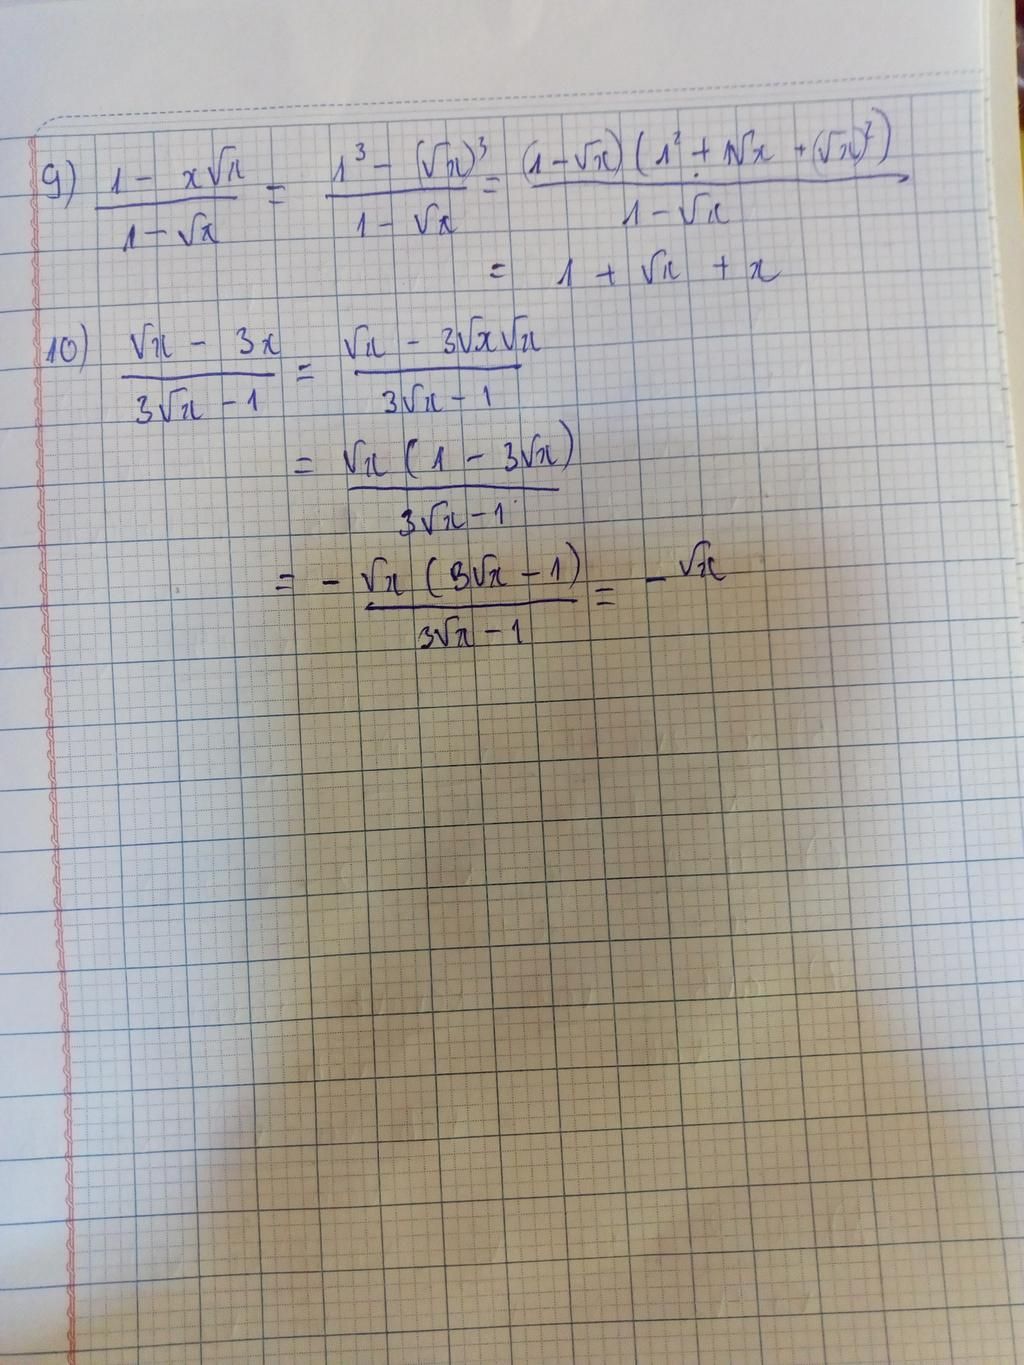 9) (1 - x√x)/(1 - √x) = (1³ - (√x)³)/(1 - √x) = ((1 - √x)(1² + 1√x + (√x)²))/(1 - √x)
= 1 + √x + x
10) (√x - 3x)/(3√x - 1) = (√x - 3√x√x)/(3√x - 1)
= (√x (1 - 3√x))/(3√x - 1)
= - (√x (3√x - 1))/(3√x - 1) = - √x